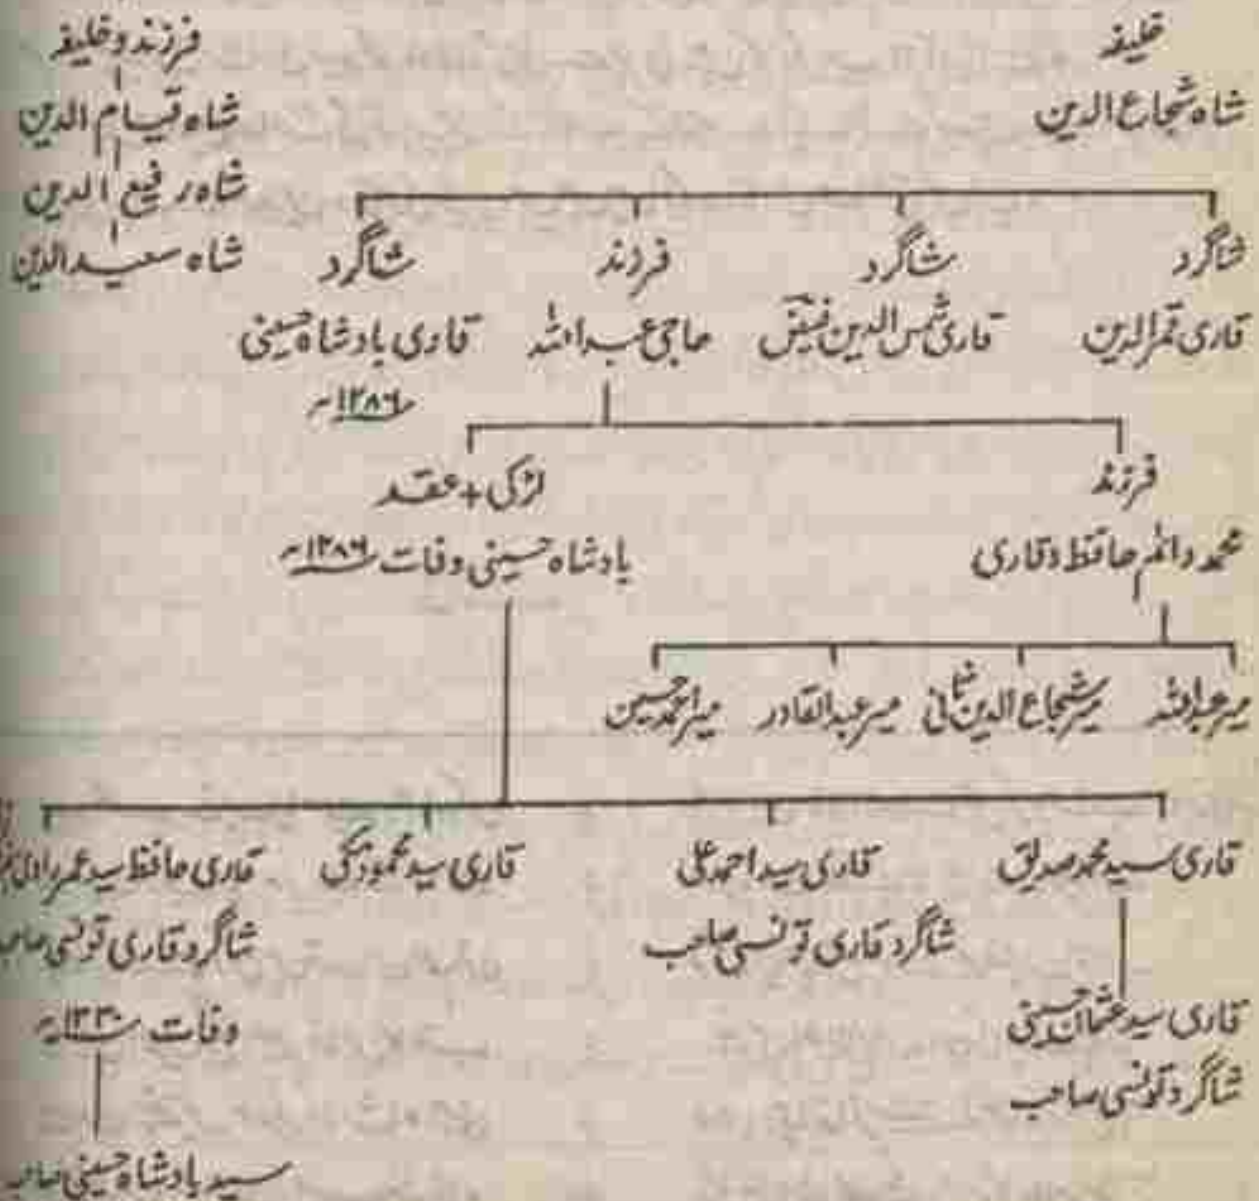 خلیفہ
شاہ شجاع الدین
فرزند و خلیفہ
شاہ قیام الدین
شاہ رفیع الدین
شاہ سعید الدین
شاگرد
قاری قمر الدین
شاگرد
قاری شمس الدین فیض
فرزند
حاجی عبداللہ
شاگرد
قاری بادشاہ حسینی
۱۲۸۶
فرزند
محمد دائم حافظ و قاری
لڑکی + عقد
بادشاہ حسینی وفات ۱۲۸۶
میر عبداللہ
میر شجاع الدین ثانی
میر عبدالقادر
میر احمد حسین
قاری سید محمد صدیق
قاری سید عثمان حسینی
شاگرد تونسی صاحب
قاری سید احمد علی
شاگرد قاری تونسی صاحب
قاری سید محمود مکی
قاری حافظ سید عمر
شاگرد قاری تونسی
وفات ۱۳۳۰
سید بادشاہ حسینی